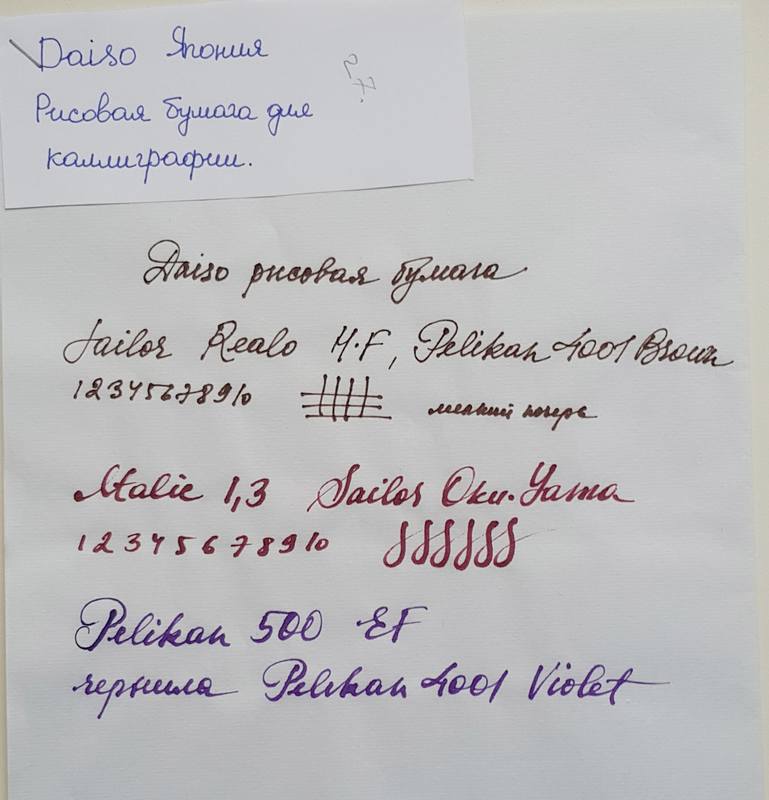 Daiso Япония
27.
Рисовая бумага для
каллиграфии.
Daiso рисовая бумага
Sailor Realo H.F, Pelikan 4001 Brown
12345678910
мелкий почерк
Italic 1,3 Sailor Oku-Yama
12345678910
Pelikan 500 EF
чернила Pelikan 4001 Violet